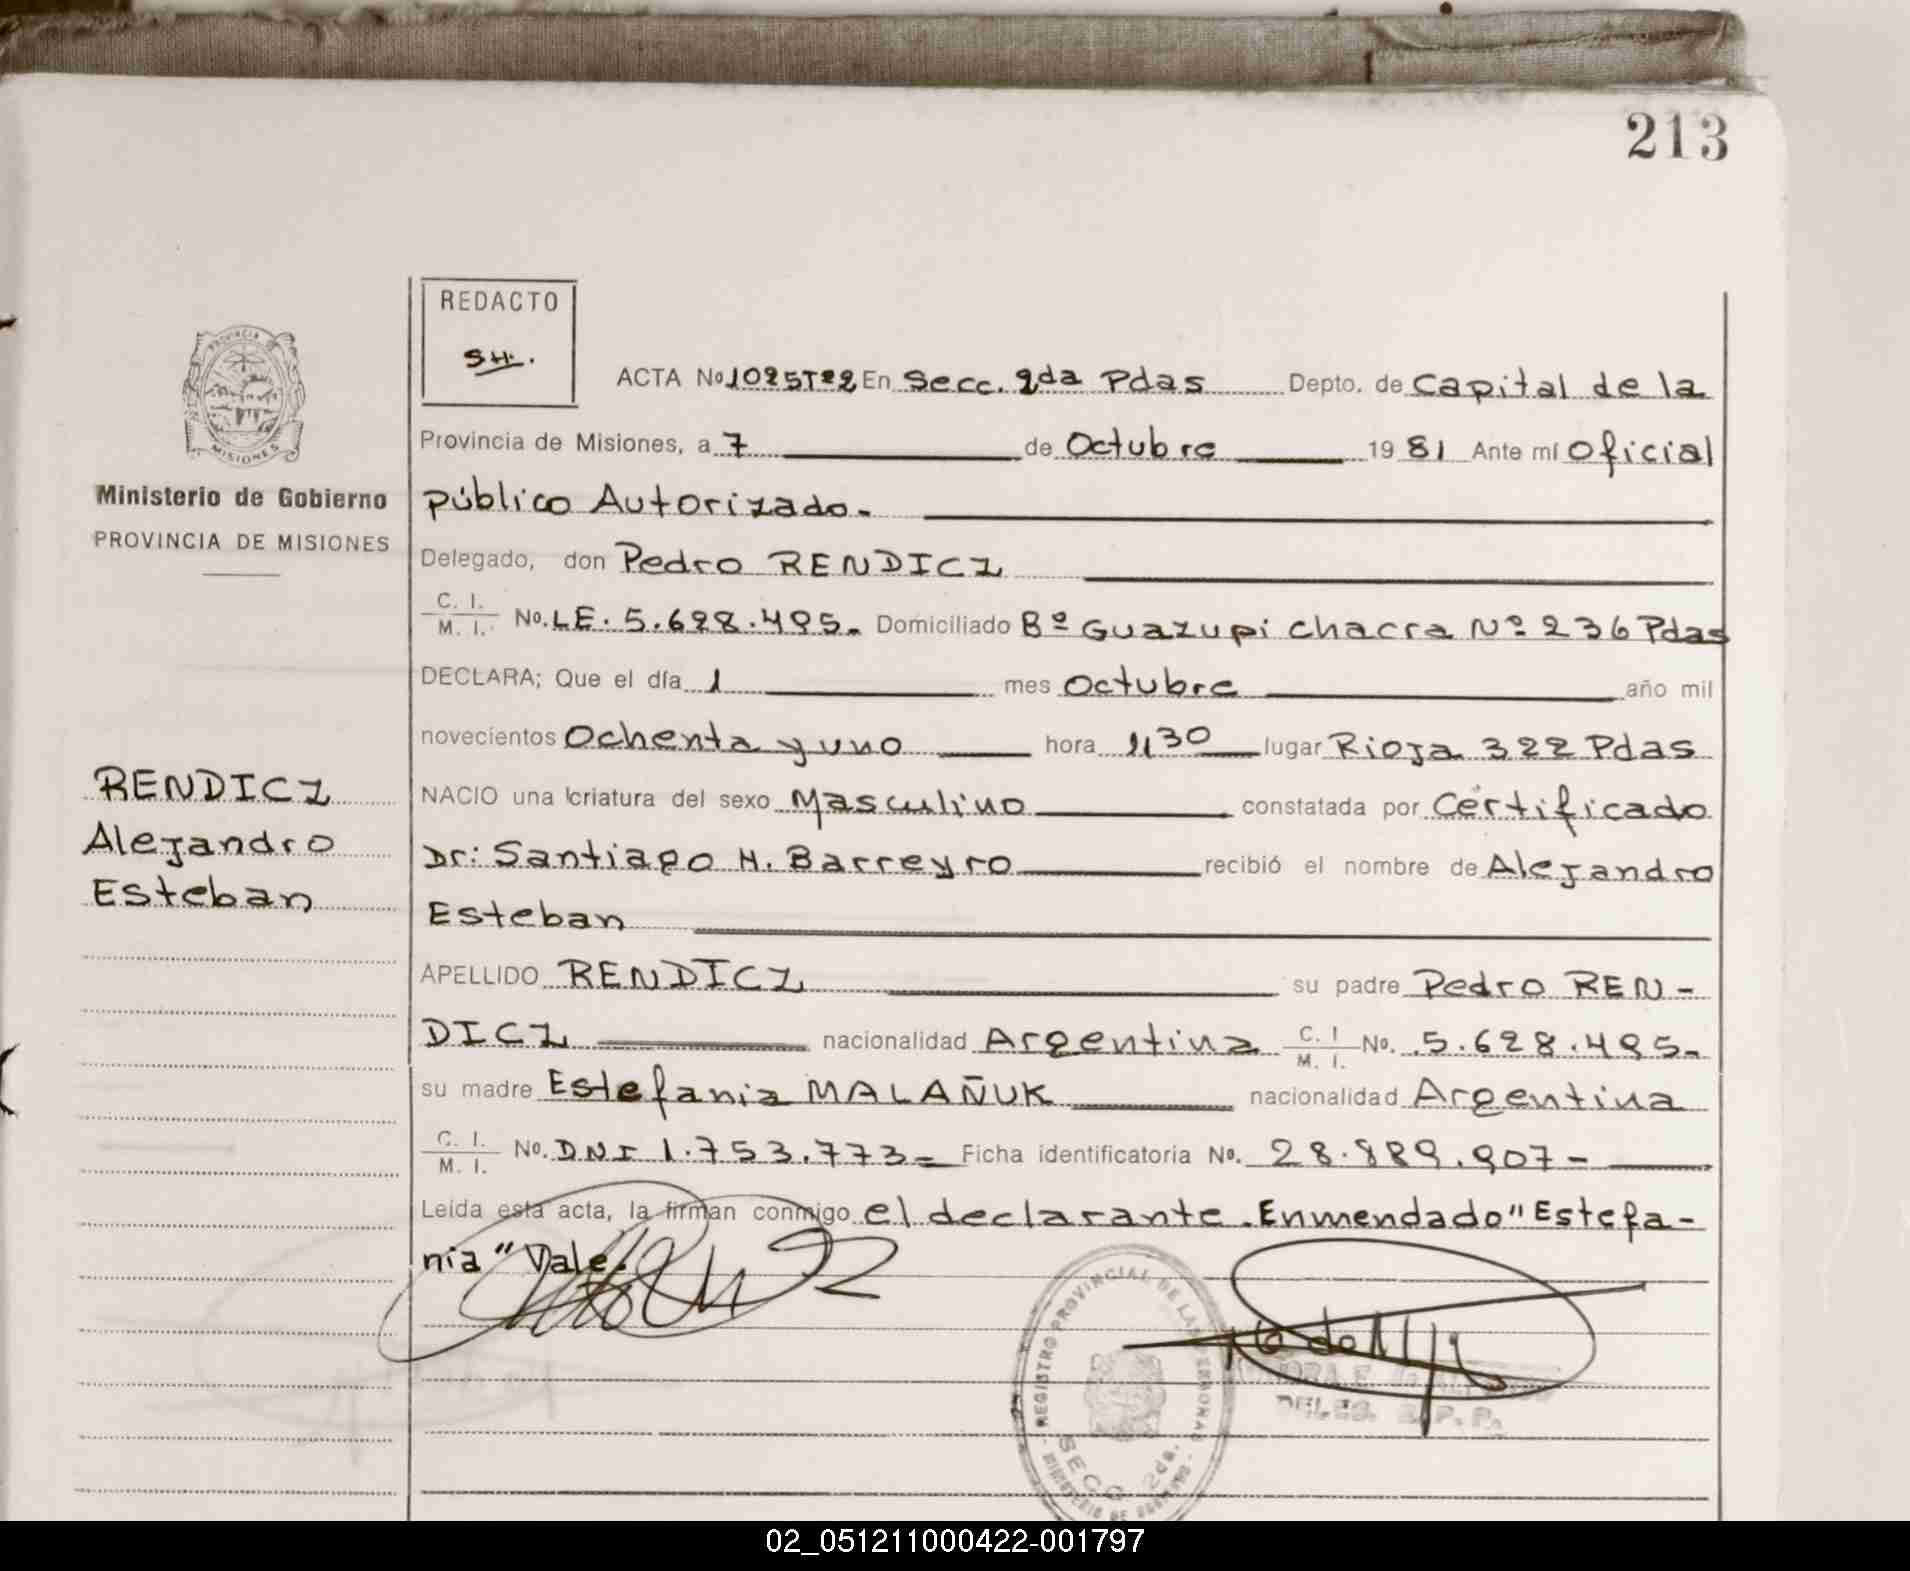 213
REDACTO
SH.
ACTA No 1025 Tº2 En Secc. 2da Pdas Depto. de Capital de la
Provincia de Misiones, a 7 de Octubre 1981 Ante mí Oficial
Público Autorizado.
Ministerio de Gobierno
PROVINCIA DE MISIONES
Delegado, don Pedro RENDICZ
C. I.
M. I. No. LE. 5.628.495. Domiciliado Bº Guazupi Chacra Nº 236 Pdas
DECLARA; Que el día 1 mes Octubre año mil
novecientos Ochenta y uno hora 1,30 lugar Rioja 322 Pdas
RENDICZ
Alejandro
Esteban
NACIO una criatura del sexo Masculino constatada por Certificado
Dr: Santiago H. Barreyro recibió el nombre de Alejandro
Esteban
APELLIDO RENDICZ su padre Pedro REN-
DICZ nacionalidad Argentina C. I M. I. No. 5.628.495-
su madre Estefania MALAÑUK nacionalidad Argentina
C. I.
M. I. No. DNI 1.753.773= Ficha identificatoria No. 28.889.907-
Leída esta acta, la firman conmigo el declarante. Enmendado "Estefa-
nia" Vale.
REGISTRO PROVINCIAL DE LAS PERSONAS
SECC 2da.
DELEG. R.P.P.
02_051211000422-001797